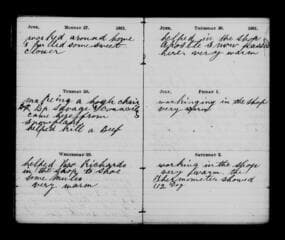 JUNE, MONDAY 27. 1892.
worked around home
& pulled some sweet
clover
TUESDAY 28.
making a high chair
Savage & Connelly
came here from
Snowflake
helped kill a Beef
WEDNESDAY 29.
helped Richards
in the shop to shoe
some mules
very warm
JUNE, THURSDAY 30. 1892.
helped in the shop
Apostle Snow passed
here very warm
JULY, FRIDAY 1.
working in the shop
very warm
SATURDAY 2.
working in the shop
very warm the
thermometer showed
112 deg